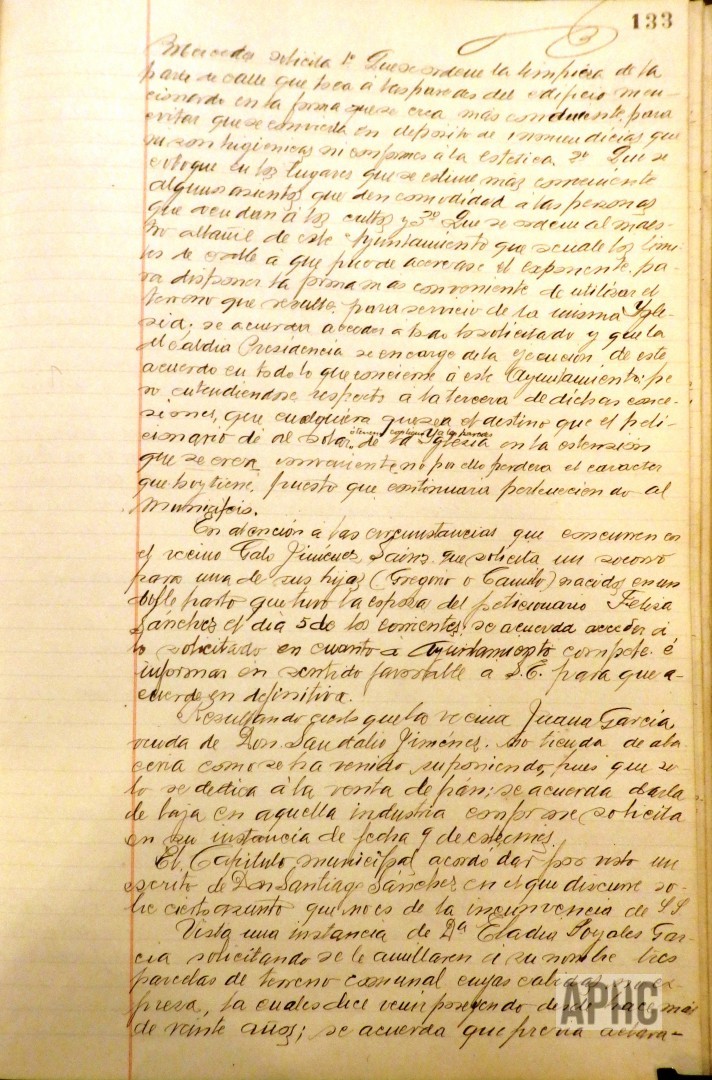 133
Mercedes solicita 1º Que se ordene la limpieza de la
parte de calle que toca á las paredes del edificio men-
cionado en la forma que se crea más conducente, para
evitar que se convierta en deposito de inmundicias que
ni son higienicas ni conformes á la estetica. 2º Que se
coloque en los lugares que se estime más conveniente
algunos asientos que den comodidad á las personas
que acudan á los cultos y 3º Que se ordene al maes-
tro albañil de este Ayuntamiento que señale los limi-
tes de a que puede acercarse el exponente, pa-
ra disponer la forma mas conveniente de utilizar el
terreno que resulte, para servicio de la misma Ygle-
sia; se acuerda acceder a todo lo solicitado y que la
Alcaldia Presidencia se encargue de la ejecucion de este
acuerdo en todo lo que concierne á este Ayuntamiento; pe-
ro, entendiendose respecto á la tercera de dichas conce-
siones, que cualquiera que sea el destino que el peti-
cionario dé al solar de la Yglesia en la estension
que se crea conveniente, no por ello perdera el caracter
que hoy tiene, puesto que continuara perteneciendo al
Municipio.
En atención a las circunstancias que concurren en
el vecino Galo Jiménez Sáinz que solicita un socorro
para uno de sus hijos (Gregorio o Camilo) nacidos en un
doble parto que tuvo la esposa del peticionario Felisa
Sánchez el dia 5 de los corrientes; se acuerda acceder á
lo solicitado en cuanto a Ayuntamiento compete é
informar en sentido favorable a S.E. para que a-
cuerde en definitiva.
Resultando cierto que la vecina Juana García,
viuda de Don Sandalio Jiménez, no tienda de aba-
ceria como se ha venido suponiendo, pues que so-
lo se dedica á la venta de pán; se acuerda darla
de baja en aquella industria conforme solicita
en su instancia de fecha 9 de este mes.
El Capitulo municipal acordó dar por visto un
escrito de Don Santiago Sánchez en el que discurre so-
bre cierto asunto que no es de la incunvencia de SS
Vista una instancia de Dª Eladia Gar-
cia solicitando se le amillaren á su nombre tres
parcelas de terreno comunal cuyas cabidas ex-
presa, la cuales dice venir poseyendo desde hace más
de veinte años; se acuerda que previa aclara-
APHC